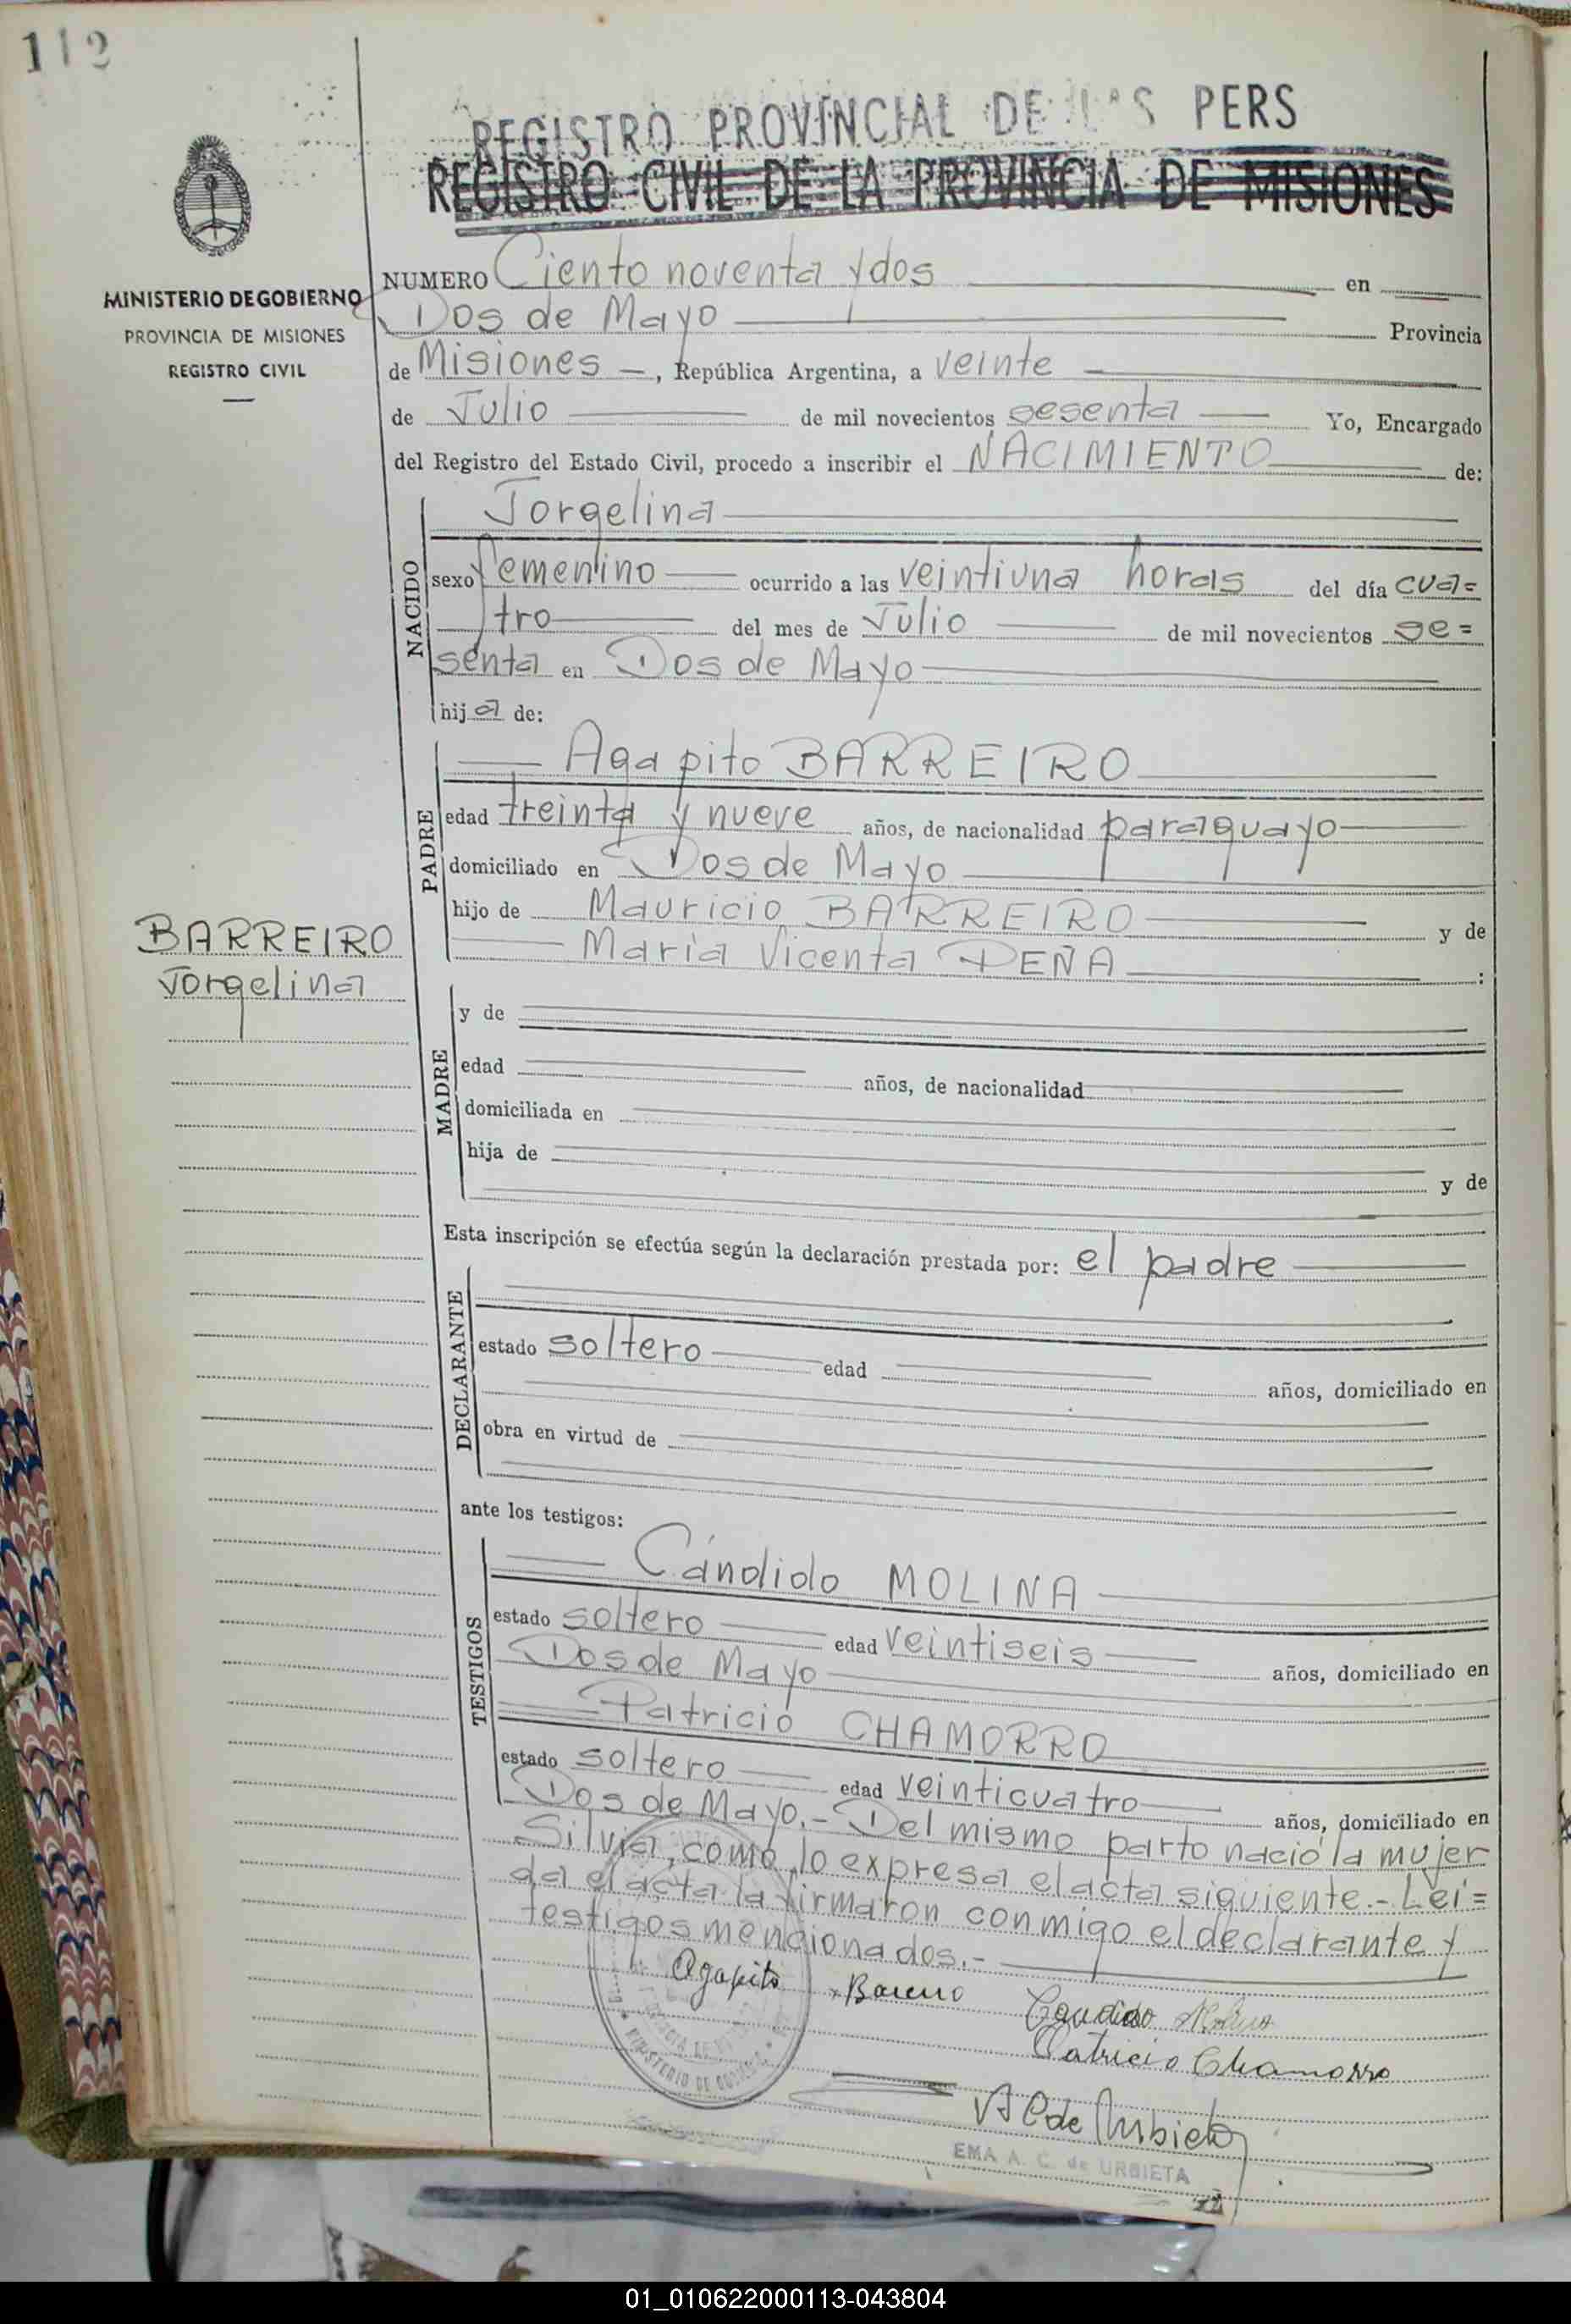 112
REGISTRO PROVINCIAL DE LAS PERS
REGISTRO CIVIL DE LA PROVINCIA DE MISIONES
MINISTERIO DE GOBIERNO
PROVINCIA DE MISIONES
REGISTRO CIVIL
NUMERO Ciento noventa y dos en
Dos de Mayo Provincia
de Misiones, República Argentina, a veinte
de Julio de mil novecientos sesenta Yo, Encargado
del Registro del Estado Civil, procedo a inscribir el NACIMIENTO de:
NACIDO
Jorgelina
sexo femenino ocurrido a las veintiuna horas del día cua=
tro del mes de Julio de mil novecientos se=
senta en Dos de Mayo
hija de:
PADRE
Agapito BARREIRO
edad treinta y nueve años, de nacionalidad paraguayo
domiciliado en Dos de Mayo
hijo de Mauricio BARREIRO y de
María Vicenta PEÑA :
BARREIRO
Jorgelina
MADRE
y de
edad años, de nacionalidad
domiciliada en
hija de
y de
Esta inscripción se efectúa según la declaración prestada por: el padre
DECLARANTE
estado soltero edad años, domiciliado en
obra en virtud de
ante los testigos:
TESTIGOS
Cándido MOLINA
estado soltero edad veintiseis años, domiciliado en
Dos de Mayo
Patricio CHAMORRO
estado soltero edad veinticuatro años, domiciliado en
Dos de Mayo.- Del mismo parto nació la mujer
Silvia, como lo expresa el acta siguiente.- Leí=
da el acta la firmaron conmigo el declarante y
testigos mencionados.-
Agapito Bareiro Candido Molina
Patricio Chamorro
MINISTERIO DE GOBIERNO
A C de Urbieta
EMA A. C. de URBIETA
01_010622000113-043804